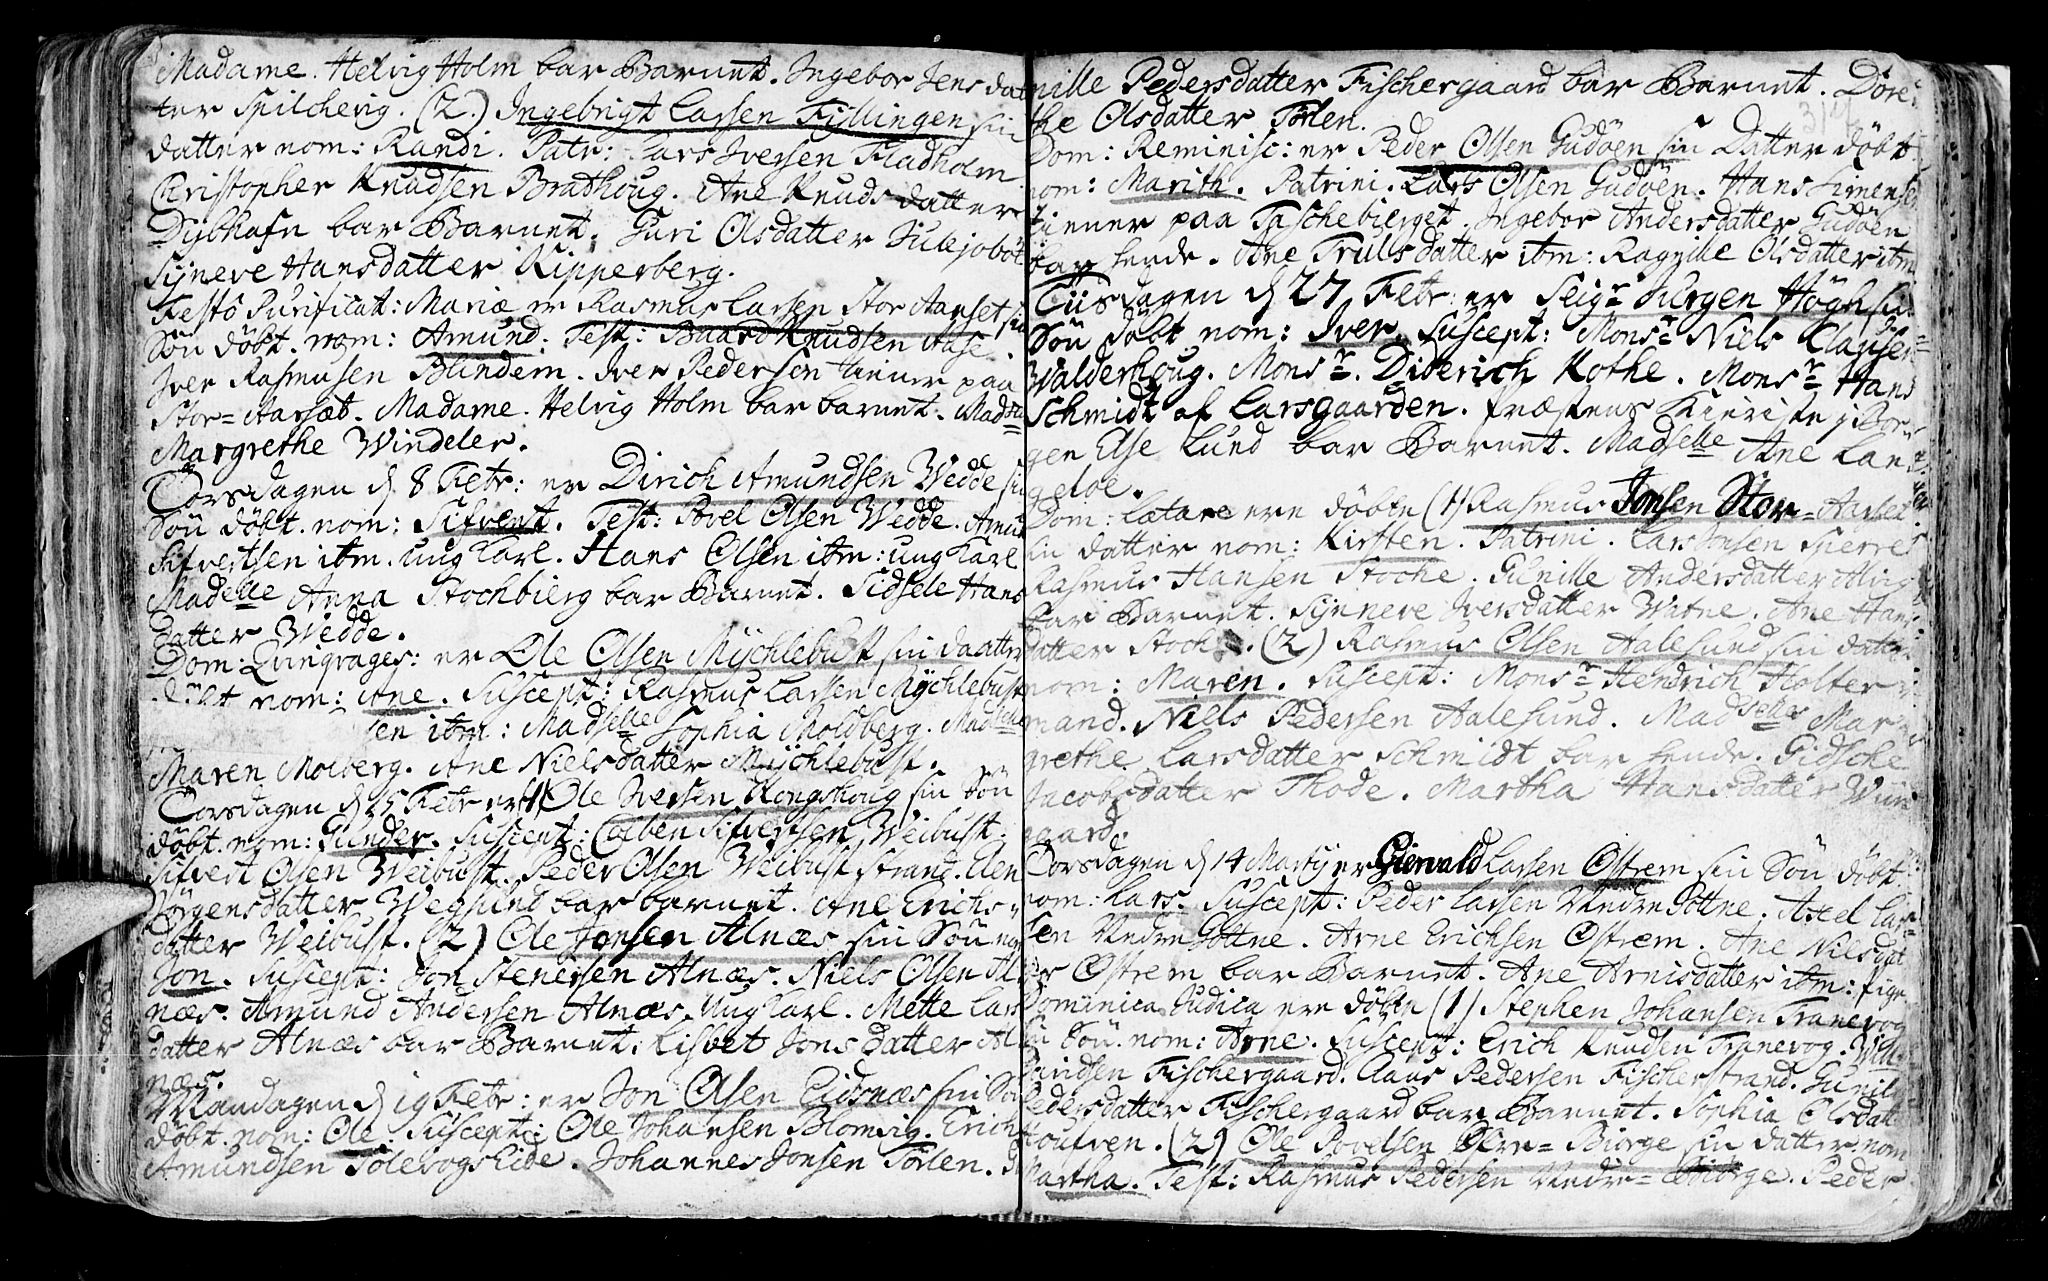 Madame. Helvig Holm bar Barnet. Ingebor Jens dat
ter Spilchevig. (2.) Ingebrigt Larsen Fyllingen sin
datter nom: Randi. Patr: Lars Iversen Fladholm
Christopher Knudsen Brathoug. Ane Knuds datter
Dybhafn bar Barnet. Guri Olsdatter Julejoböt
Synneve Hansdatter Kipperberg.
Festo Purificat: Mariæ er Rasmus Larsen Stor Aarset sin
Sön döbt. nom: Amund. Test: Baard Knudsen Aase
Iver Rasmusen Blindem. Iver Pedersen tiener paa
Stor= Aarsæt. Madame. Helvig Holm bar barnet. Mads
Margrethe Windeler.
Torsdagen d 8 Febr: er Dirich Amundsen Wedde sin
Sön döbt. nom: Sifvert. Test: Povel Olsen Wedde. Amun
Sifvertsen itm. ung Karl. Hans Olsen itm: ung Karl
Madelle Anna Stochbierg bar Barnet. Sidsele Hans
datter Wedde.
Dom: Qvinqvages: er Ole Olsen Mychlebust sin daatter
döbt nom: Ane. Suscept: Rasmus Larsen Mychlebust
sen itm: Madselle Sophia Moldberg. Madselle
Maren Molberg. Ane Nielsdatter Mychlebust.
Torsdagen d 15 Febr er (1) Ole Iversen Kongshoug sin Sön
döbt. nom: Gunder. Suscept: Colben Sifvertsen Weibust.
Sifvert Olsen Weibust. Peder Olsen Weibust strand. Elen
Jörgensdatter Wegsund bar barnet. Ane Erichs=
datter Weibust. (2) Ole Jonsen Alnæs sin Sön nom
Jon. Suscept: Jon Stenersen Alnæs. Niels Olsen Al
næs. Amund Andersen Alnæs. Ung Karl. Mette Lars
datter Alnæs bar Barnet. Lisbet Jons datter Al
næs.
Mandagen d 19 Febr: er Jon Olsen Eidsnæs sin Sön
döbt. nom: Ole. Suscept: Ole Johansen Blomvig. Erich
Amundsen Solevogseide. Johannes Jonsen Törlen.
nille Pedersdatter Fischergaard bar Barnet. Dore
the Olsdatter Törlen.
Dom: Reminisc: er Peder Olsen Gudöen sin Datter döbt
nom: Marith. Patrini. Lars Olsen Gudöen. Hans Simensen
tiener paa Taschebierget. Ingebor Andersdatter Gudöen
bar hende. Ane Trulsdatter itm: Ragnille Olsdatter itm
Tiisdagen d 27 Febr: er Seigr Jürgen Högh sin
Sön döbt nom: Iver. Suscept: Monsr Niels Klausen
Walderhoug. Monsr. Diderich Kothe. Monsr Hans
Schmidt af Larsgaarden. Præstens Kieriste j Bor=
gen Else Lund bar Barnet. Madselle Ane Lan
geloe.
Dom: Lætare ere döbte (1) Rasmus Jonsen Stor=Aarset
sin datter nom: Kirsten. Patrini. Lars Jonsen Sperre
Rasmus Hansen Stoche. Gunille Andersdatter Alvig
bar Barnet. Synneve Iversdatter Watne. Ane Hans
datter Stoche. (2) Rasmus Olsen Aalesund sin datter
nom: Maren. Suscept: Monsr Hendrich Holter
mand. Niels Pedersen Aalesund. Madselle Mar
grethe Larsdatter Schmidt bar hende. Gidsche
Jacobsdatter Thode. Martha Hansdatter Wiin
gaard.
Torsdagen d 14 Martij er Gienvald Larsen Östrem sin Sön döbt.
nom: Lars. Suscept: Peder Larsen Nedre Gottne. Axel Lar=
sen Nedre Gottne. Arne Erichsen Östrem. Ane Nielsdat
ter Östrem bar Barnet. Ane Arnisdatter itm: pige
Dominica Judica ere döbte (1) Stephen Johansen Tranevog
sin Sön. nom: Arne. Suscept: Erich Knudsen Tranevog.
Fischergaard. Claas Pedersen Fischerstrand. Gunild
Pedersdatter Fischergaard bar Barnet. Sophia Olsdatt
(2) Ole Povelsen Öfre= Biorge sin datter. nom
Martha. Test: Rasmus Pedersen Nedre= Biorge. Peder